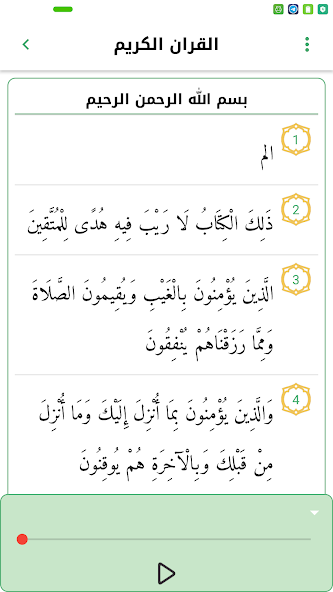 القران الكريم
بسم الله الرحمن الرحيم
1
الم
2
ذَلِكَ الْكِتَابُ لَا رَيْبَ فِيهِ هُدًى لِلْمُتَّقِينَ
3
الَّذِينَ يُؤْمِنُونَ بِالْغَيْبِ وَيُقِيمُونَ الصَّلَاةَ
وَمِمَّا رَزَقْنَاهُمْ يُنْفِقُونَ
4
وَالَّذِينَ يُؤْمِنُونَ بِمَا أُنْزِلَ إِلَيْكَ وَمَا أُنْزِلَ
مِنْ قَبْلِكَ وَبِالْآخِرَةِ هُمْ يُوقِنُونَ